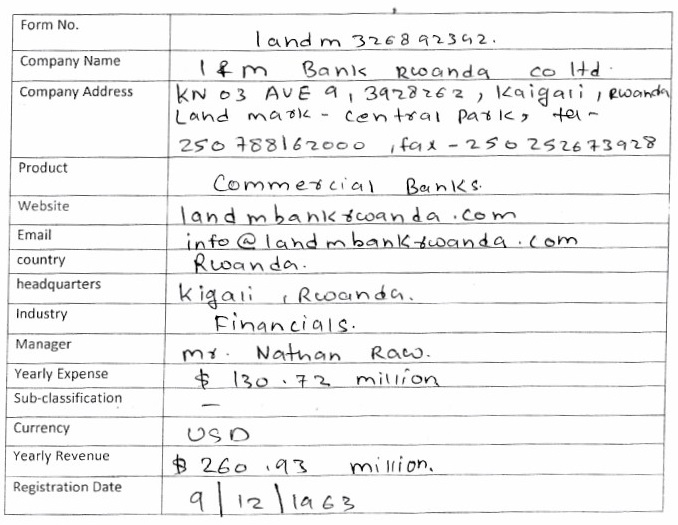 Form No. landm 326892342.
Company Name I & m Bank Rwanda co ltd.
Company Address KN 03 AVE 9, 3928262, Kaigali, Rwanda
Land mark - Central Park, tel -
250 788162000, fax - 250 252673928
Product Commercial Banks.
Website landmbankrwanda.com
Email info@landmbankrwanda.com
country Rwanda.
headquarters Kigali, Rwanda.
Industry Financials.
Manager mr. Nathan Raw.
Yearly Expense $ 130.72 million
Sub-classification -
Currency USD
Yearly Revenue $ 260.93 million.
Registration Date 9/12/1963